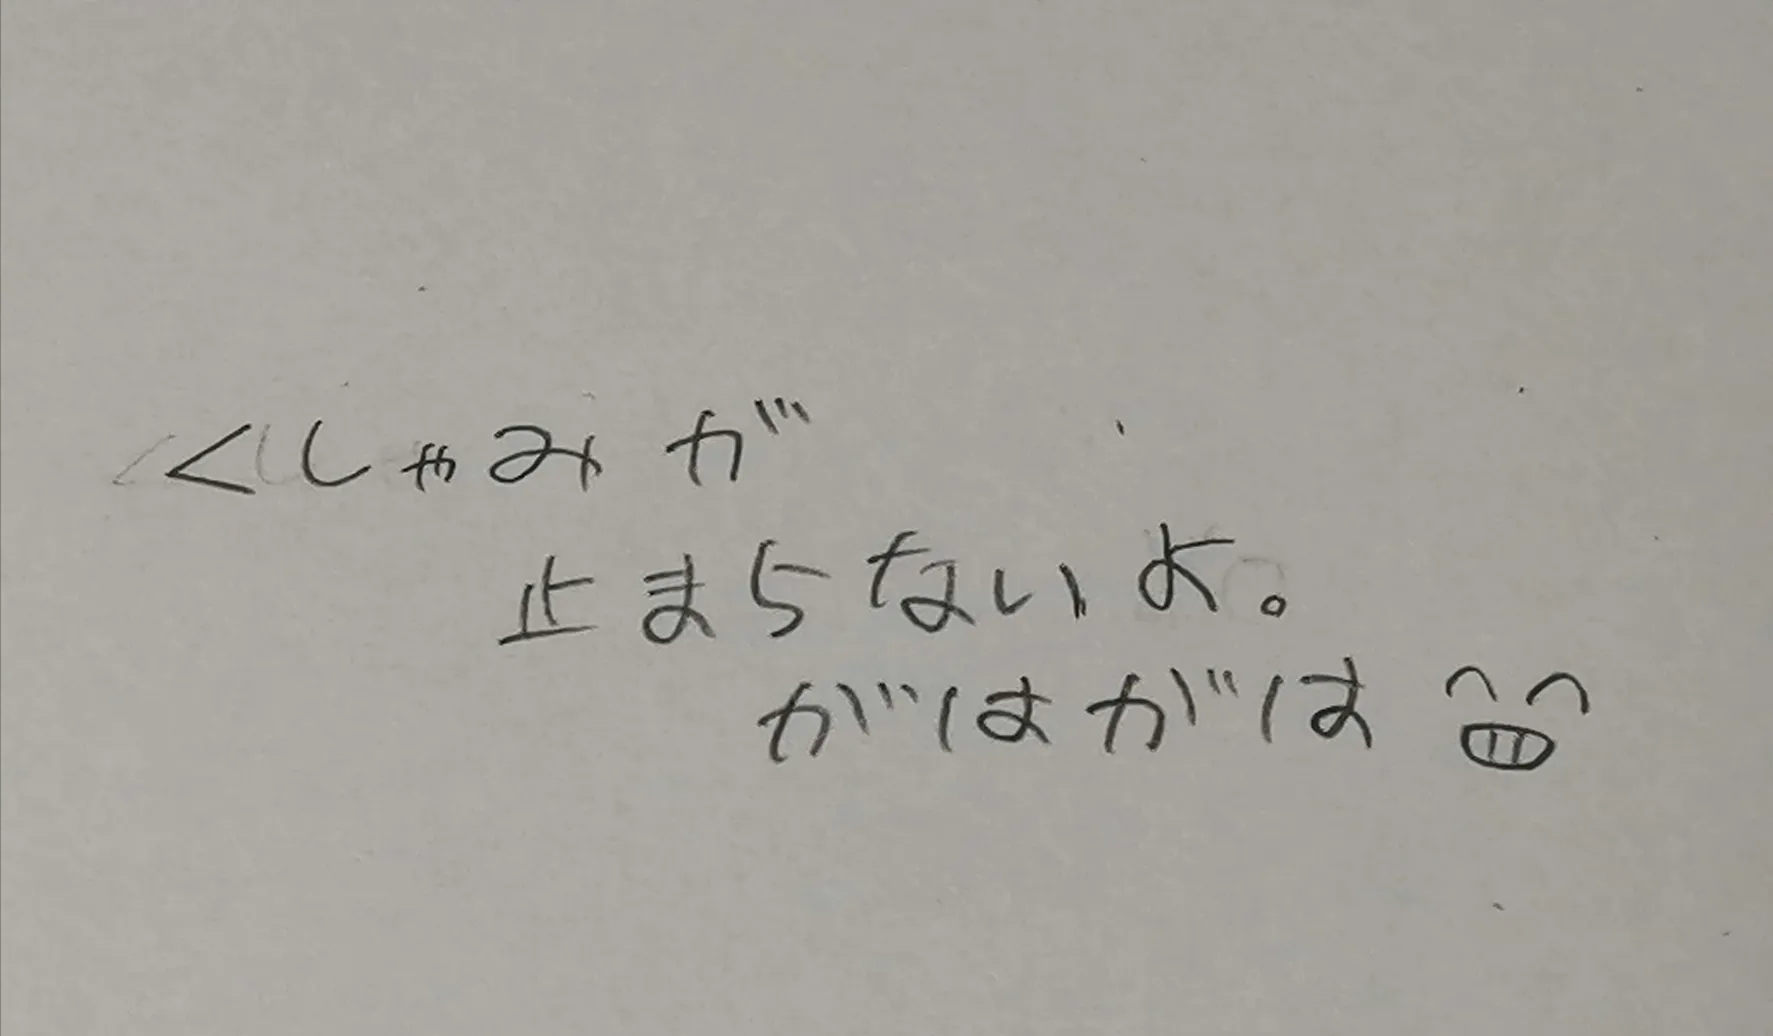 くしゃみが
止まらないよ。
がはがは